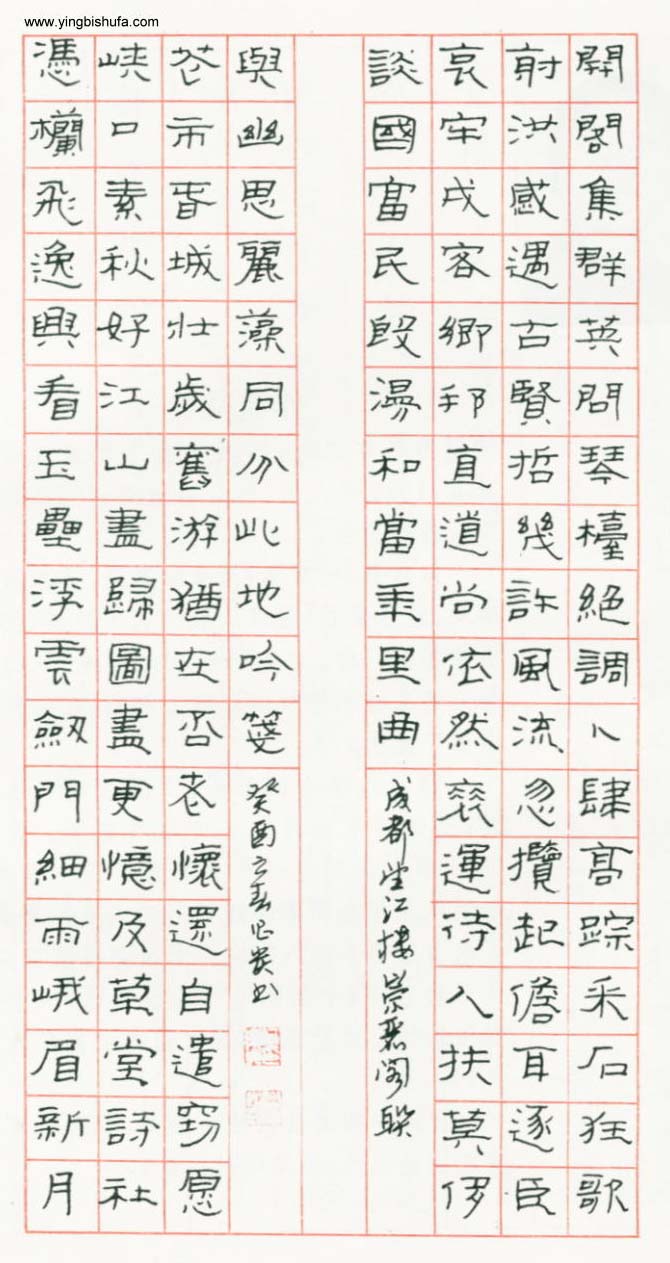 開閣集群英問琴檯絕調卜肆高踪采石狂歌
射洪感遇古賢哲幾許風流忽攬起儋耳逐臣
哀牢戍客鄉邦直道尚依然衰運待人扶莫侈
談國富民殷漫和當里曲
成都望江樓崇麗閣聯
憑欄飛逸興看玉壘浮雲劍門細雨峨眉新月
峽口素秋好江山盡歸圖畫更憶及草堂詩社
花市春城壯歲舊游猶在否老懷還自遣窃愿
與幽思麗藻同分此地吟箋
癸酉之春書
www.yingbishufa.com